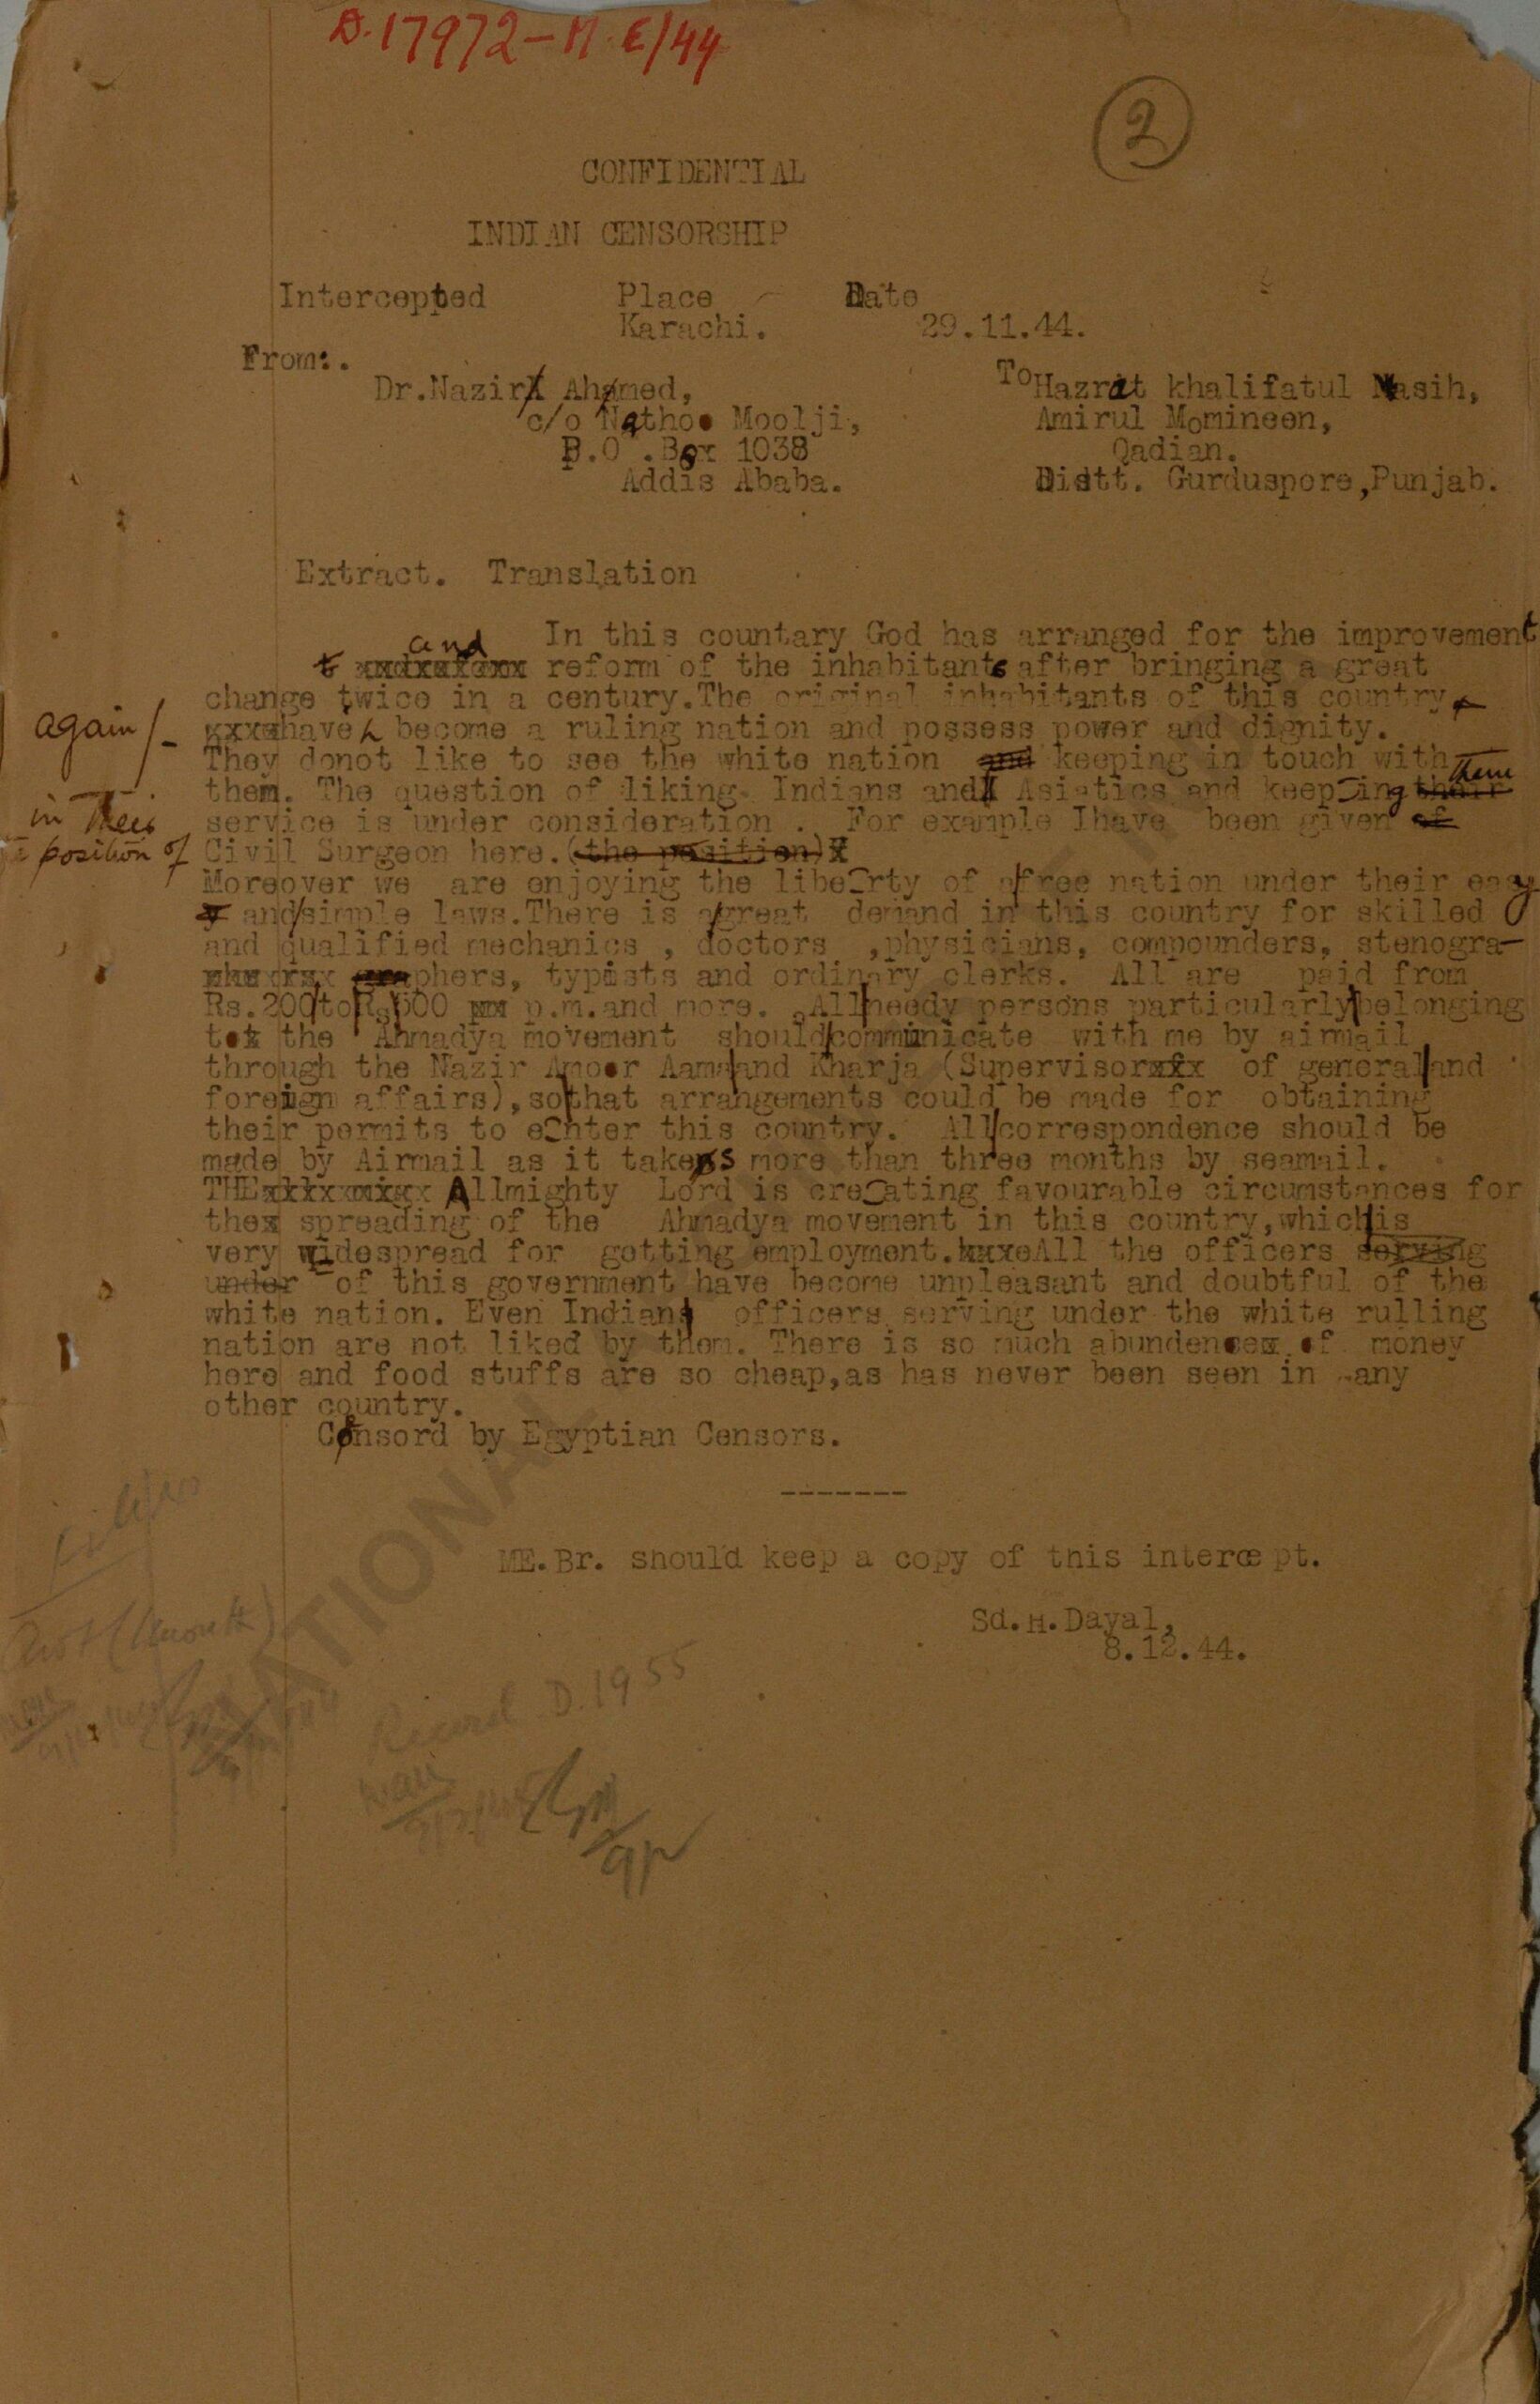 D.17972-M.E/44
2
CONFIDENTIAL
INDIAN CENSORSHIP
Intercepted Place Date
Karachi. 29.11.44.
From:.
Dr.Nazir Ahmed, To Hazrat khalifatul Masih,
c/o Nathoo Moolji, Amirul Momineen,
P.O .Box 1038 Qadian.
Addis Ababa. Distt. Gurduspore,Punjab.
Extract. Translation
In this countary God has arranged for the improvement
and reform of the inhabitants after bringing a great
change twice in a century.The original inhabitants of this country
again/- have become a ruling nation and possess power and dignity.
They donot like to see the white nation and keeping in touch with
them. The question of liking Indians and Asiatics and keeping their them
in their service is under consideration . For example Ihave been given of
position of Civil Surgeon here.(the position)
Moreover we are enjoying the liberty of a free nation under their easy
and simple laws.There is a great demand in this country for skilled
and qualified mechanics , doctors ,physicians, compounders, stenogra-
phers, typists and ordinary clerks. All are paid from
Rs.200 to Rs 500 p.m.and more. All needy persons particularly belonging
to the Ahmadya movement should communicate with me by airmail
through the Nazir Amoor Aama and Kharja (Supervisor of general and
foreign affairs),so that arrangements could be made for obtaining
their permits to enter this country. All correspondence should be
made by Airmail as it takes more than three months by seamail.
THE Allmighty Lord is creating favourable circumstances for
the spreading of the Ahmadya movement in this country,which is
very widespread for getting employment. All the officers serving
under of this government have become unpleasant and doubtful of the
white nation. Even Indian officers serving under the white rulling
nation are not liked by them. There is so much abundence of money
here and food stuffs are so cheap,as has never been seen in any
other country.
Censord by Egyptian Censors.
-------
ME.Br. should keep a copy of this intercept.
Sd.H.Dayal,
8.12.44.
Record D.1955
NATIONAL